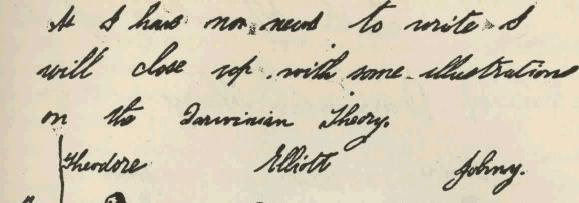 As I have non news to write I
will close up with some illustrations
on the Darwinian Theory.
Theodore Elliott Johny.